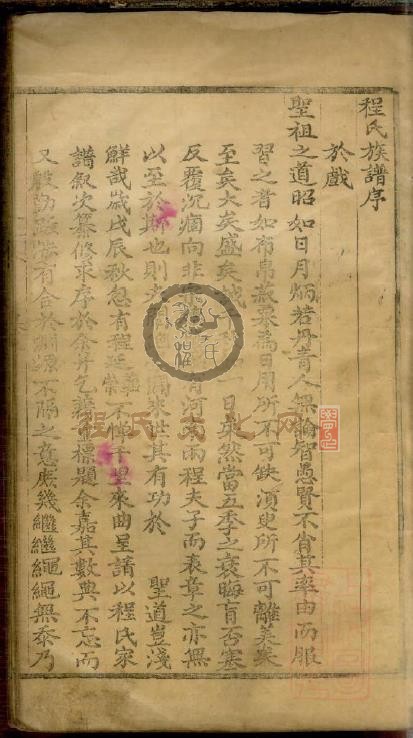 程氏族譜序
於戲
聖祖之道昭如日月炳若丹青人無論智愚賢不肖其率由而服
習之者如布帛菽粟為日用所不可缺須臾所不可離美矣
至矣大矣盛矣誠千 一日矣然當五季之衰晦盲否塞
反覆沉痼向非 有河南兩程夫子而表章之亦無
以至於斯也則 開來世其有功於 聖道豈淺
鮮哉歲戊辰秋忽有程延 不憚千里來曲呈請以程氏家
譜叙次纂修求序於余并乞 標題余嘉其數典不忘而
又 有合於 不隔之意庶幾繼繼繩繩無忝乃
程氏文化网